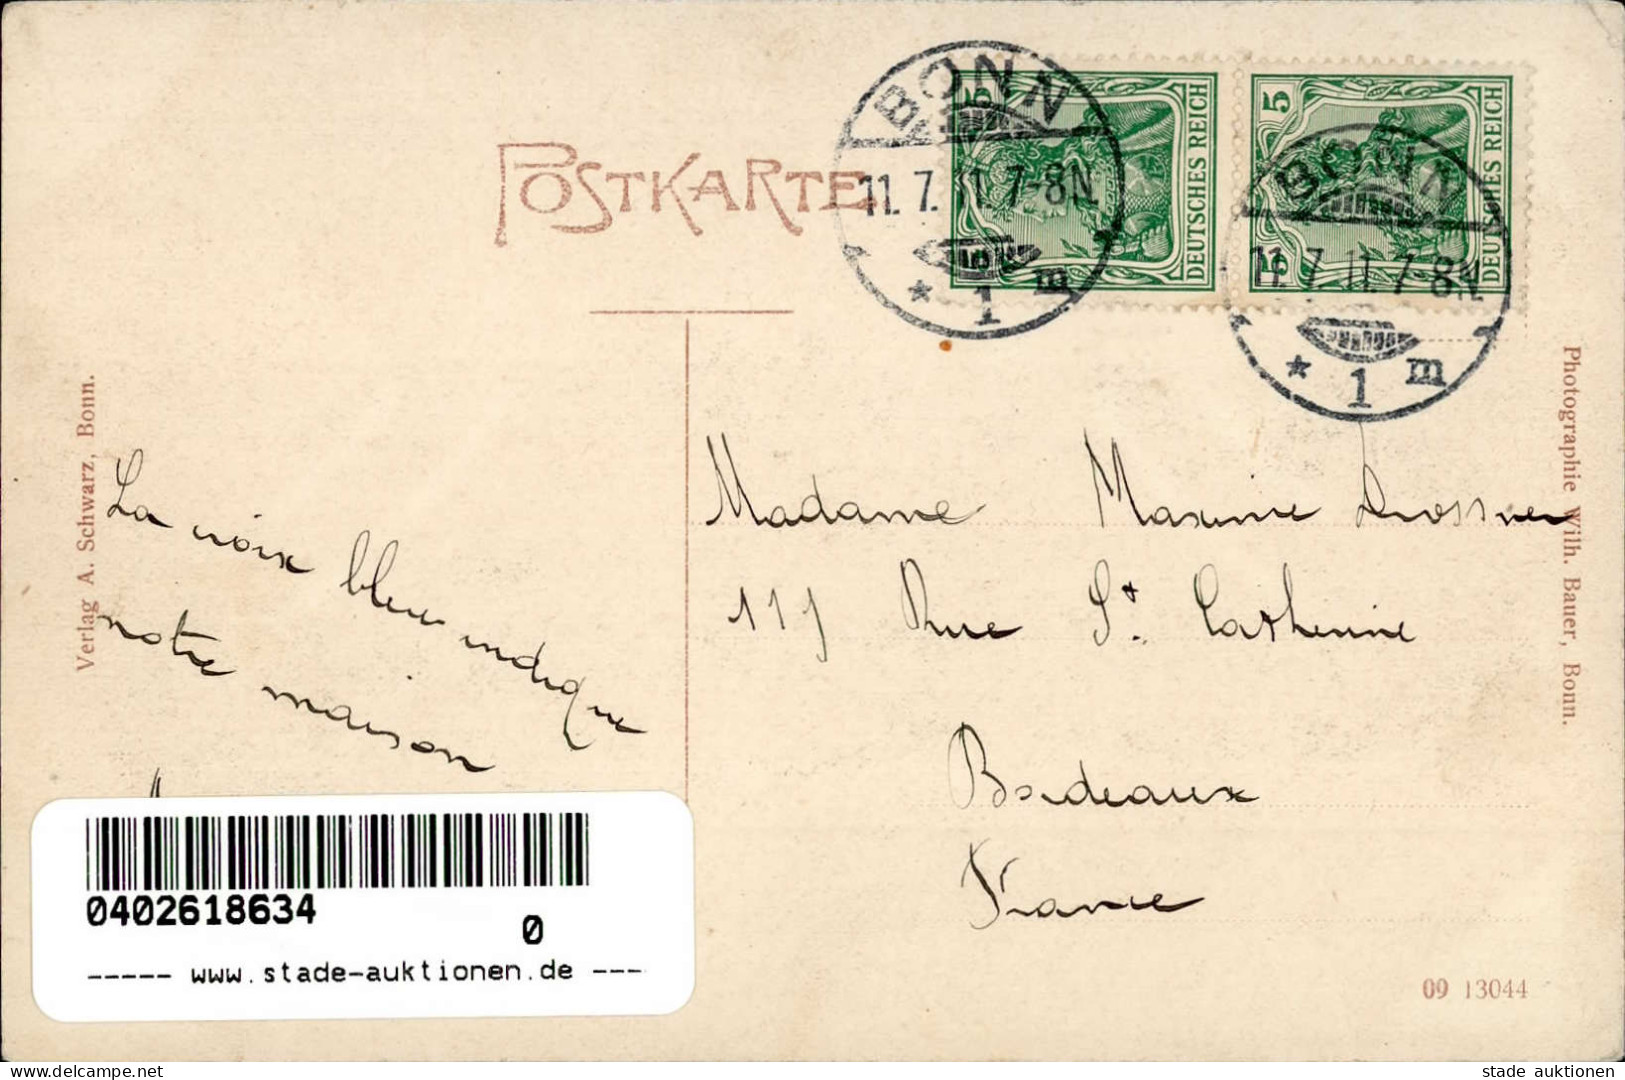 POSTKARTE
BONN
11. 7. 11. 7-8N.
* 1 m
BONN
11. 7. 11. 7-8N.
* 1 m
5
DEUTSCHES REICH
5
5
DEUTSCHES REICH
Verlag A. Schwarz, Bonn.
La croix bleue indique
notre maison
Madame Maxime
111 Rue St. Catherine
Bordeaux
France
Photographie Wilh. Bauer, Bonn.
09 13044
0402618634
0
----- www.stade-auktionen.de ---
My Paper World.com
stade auktionen